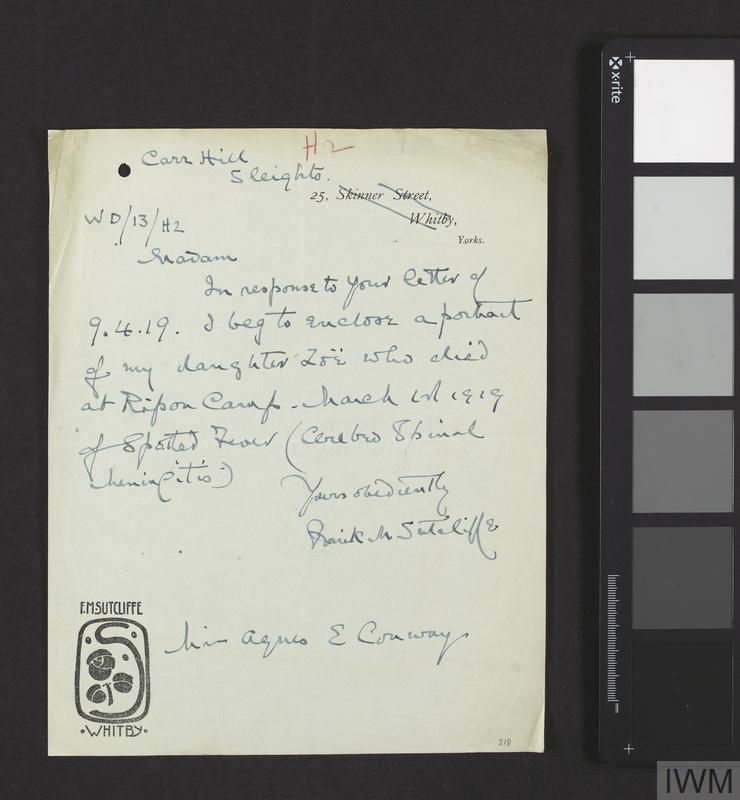 H2
Carr Hill
Sleights.
25, Skinner Street,
Whitby,
Yorks.
WD/13/H2
Madam
In response to your letter of
9.4.19. I beg to enclose a portrait
of my daughter Zoë who died
at Ripon Camp. March 1st 1919
of Spotted Fever (Cerebro Spinal
Meningitis)
Yours obediently
Frank M Sutcliffe
F.M.SUTCLIFFE
WHITBY
Miss Agnes E Conway
218
x-rite
mm
IWM